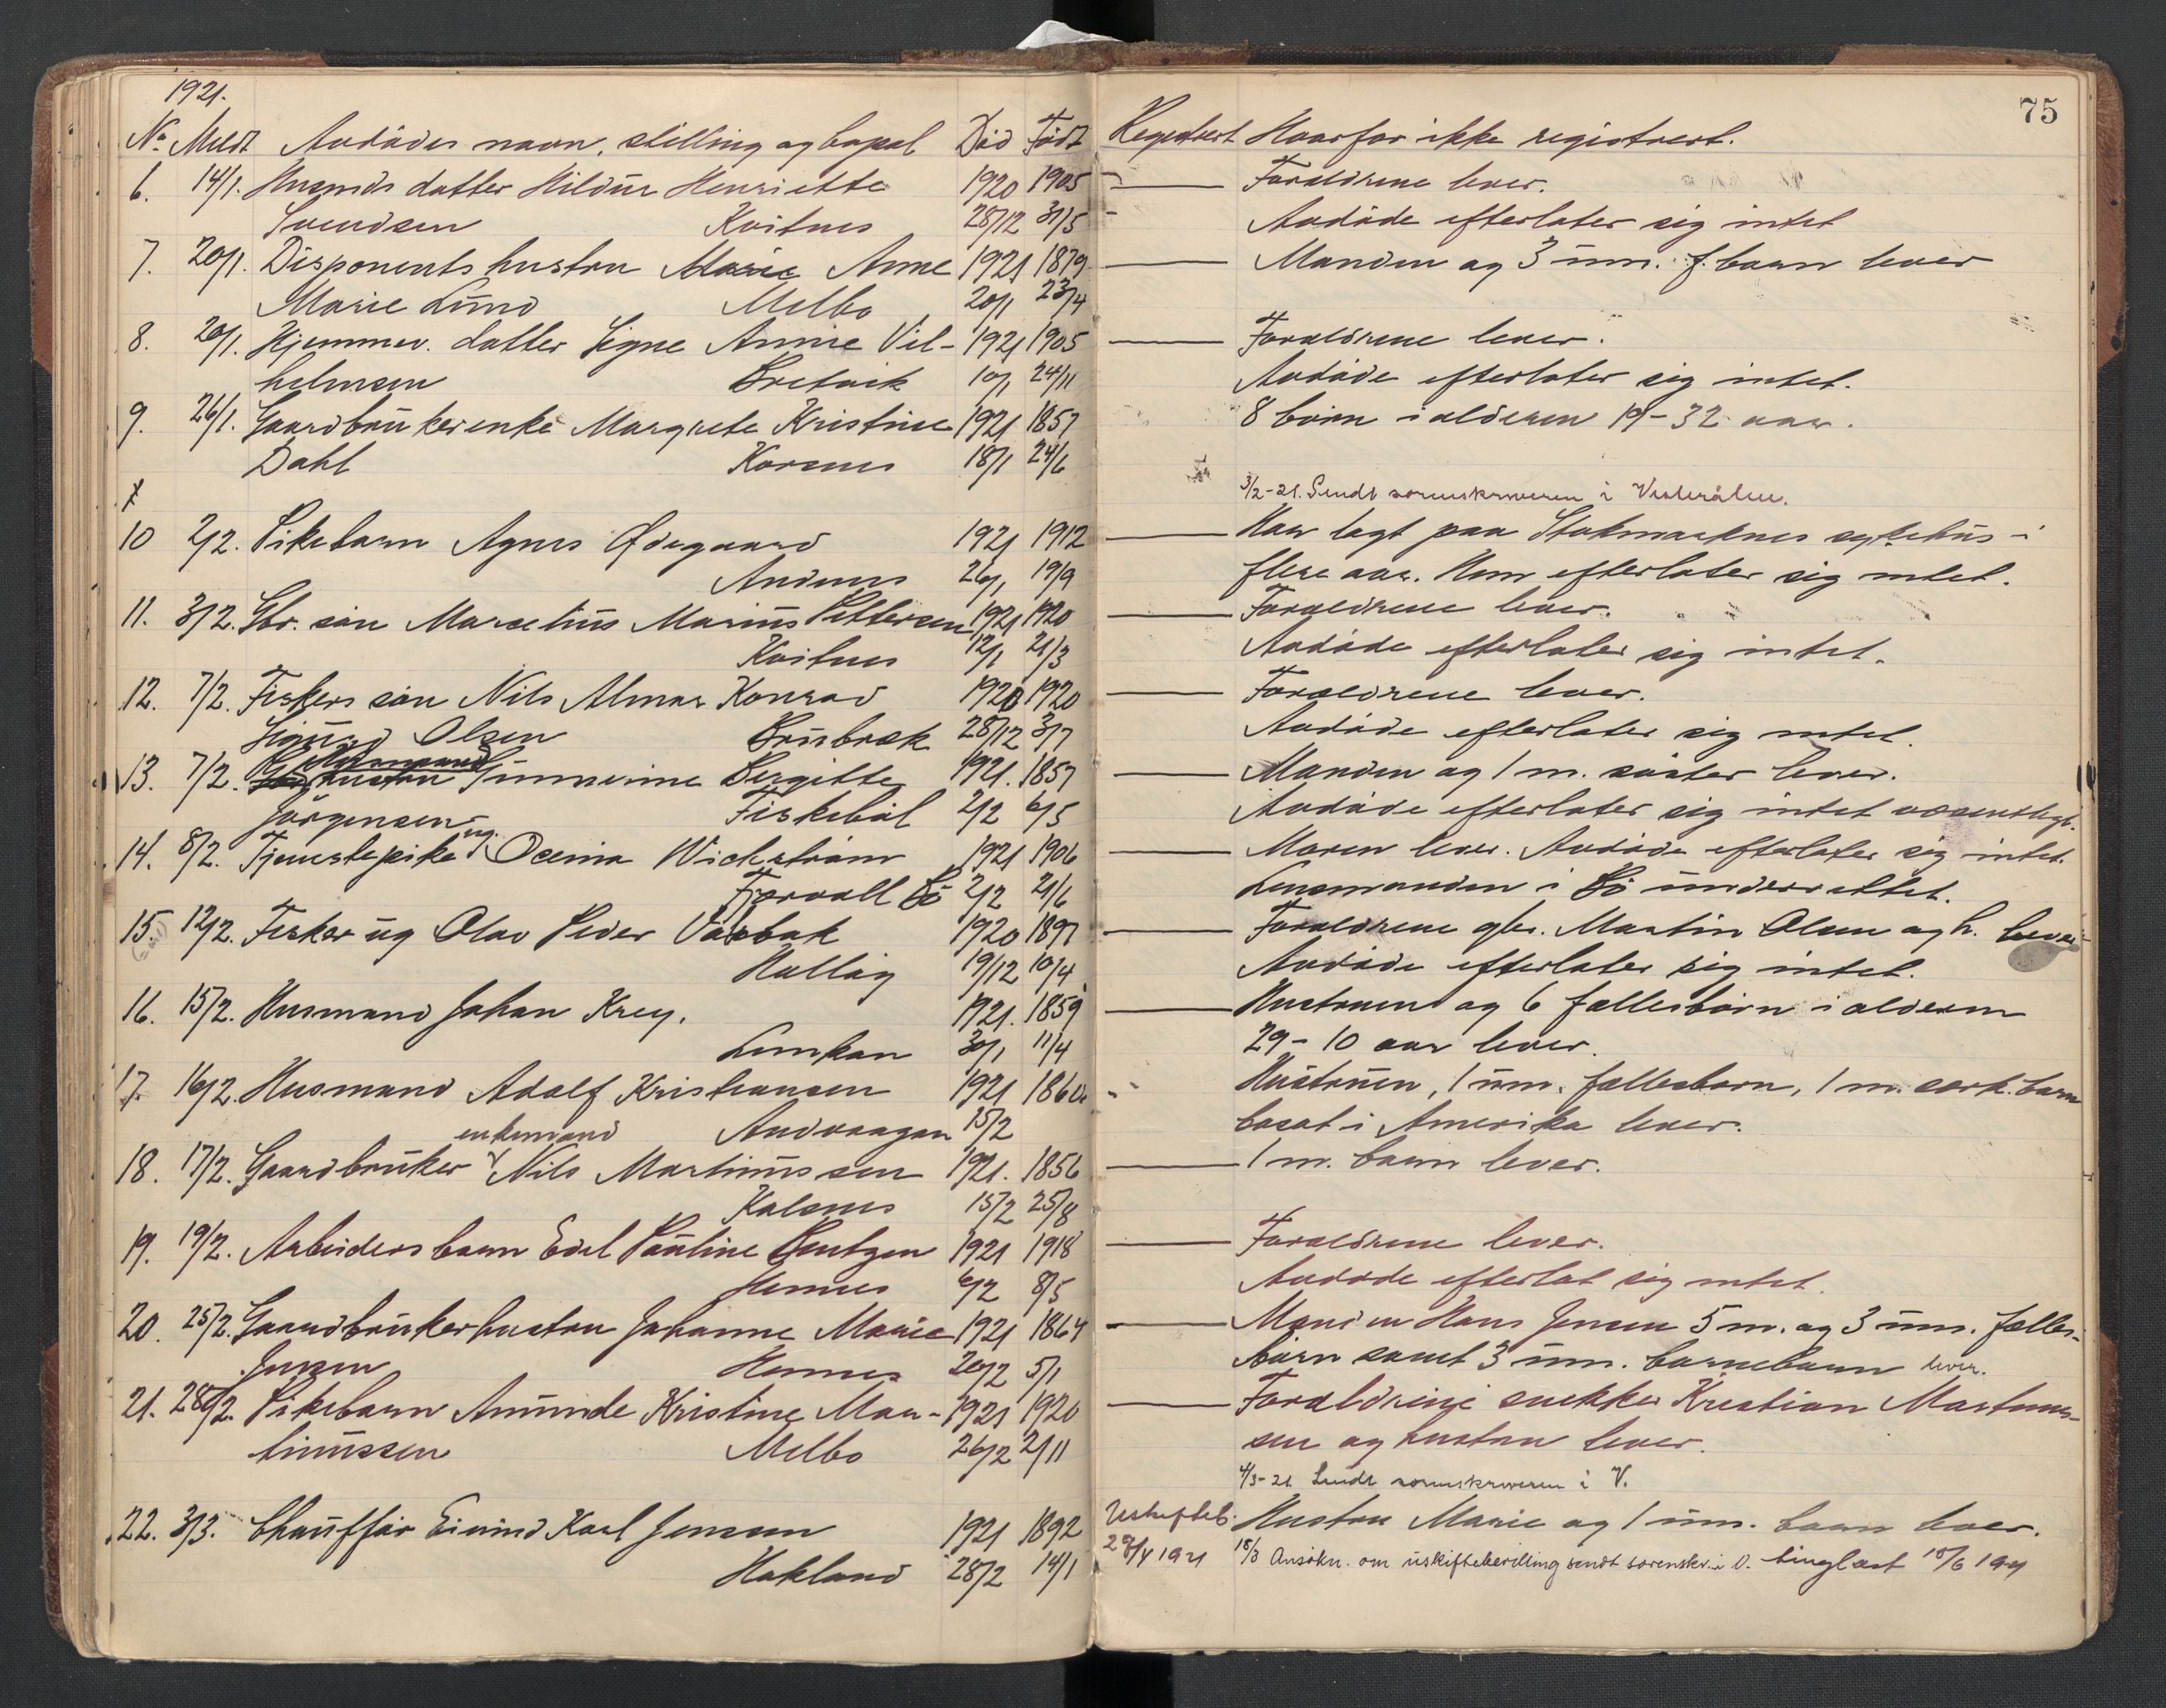 1921.
75
No Meldt Avdødes navn, stilling og bopæl Død Født Registrert Hvorfor ikke registrert.
6. 14/1. Husmds datter Hildur Henriette 1920 1905 Forældrene lever.
Svendsen Kvitnes 28/12 31/5 Avdøde efterlater sig intet
7. 20/1. Disponents hustru Marie Anne 1921 1879 Manden og 3 um. f. barn lever
Marie Lund Melbo 20/1 23/4
8. 20/1. Hjemmev. datter Signe Annie Vil- 1921 1905 Forældrene lever.
helmsen Bretvik 10/1 24/11 Avdøde efterlater sig intet.
9. 26/1. Gaardbrukerenke Margrete Kristine 1921 1857 8 børn i alderen 19-32 aar.
Dahl Korsnes 18/1 24/6
3/2-21. Sendt sorenskriveren i Vesterålen.
10 2/2. Pikebarn Agnes Ødegaard 1921 1912 Har lagt paa Stokmarknes sykehus i
Andnes 26/1 19/9 flere aar. Hun efterlater sig intet.
11. 3/2. Gbr. søn Marselius Marius Pettersen 1921 1920 Forældrene lever.
Kvitnes 12/1 21/3 Avdøde efterlater sig intet.
12. 7/2. Fiskers søn Nils Almar Konrad 1920 1920 Forældrene lever.
Sigurd Olsen Brusbræk 28/12 3/7 Avdøde efterlater sig intet.
13. 7/2. hustru Gunnerine Bergitte 1921. 1857 Manden og 1 m. søster lever.
Jørgensen Fiskebøl 2/2 6/5 Avdøde efterlater sig intet væsentligt.
14. 8/2. Tjenestepike ug. Ocenia Wickstrøm 1921 1906 Moren lever. Avdøde efterlater sig intet.
Fjærvoll Bø 2/2 21/6 Lensmanden i Bø underrettet.
15. 12/2. Fisker ug Olav Peder Vaabak 1920 1897 Forældrene gbr. Martin Olsen og h. lever
Halløy 19/12 10/4 Avdøde efterlater sig intet.
16. 15/2. Husmand Johan Krey. 1921. 1859 Hustruen og 6 fællesbørn i alderen
Lunkan 30/1 11/4 29-10 aar lever.
17. 16/2. Husmand Adolf Kristiansen 1921 1860. Hustruen, 1 um. fællesbarn, 1 m. særk. barn
Andvaagan 15/2 bosat i Amerika lever.
18. 17/2. Gaardbruker enkemand Nils Martinussen 1921. 1856 1 m. barn lever.
Kalsnes 15/2 25/8
19. 19/2. Arbeidersbarn Edel Pauline Bentzen 1921 1918 Forældrene lever.
Hennes 6/2 8/5 Avdøde efterlot sig intet.
20. 25/2. Gaardbrukerhustru Johanne Marie 1921 1864 Manden Hans Jensen 5 m. og 3 um. fælles-
Jensen Hennes 20/2 5/1 børn samt 3 um. barnebarn lever.
21. 28/2. Pikebarn Amunde Kristine Mar- 1921 1920 Forældrene snekker Kristian Martinus-
tinussen Melbo 26/2 2/11 sen og hustru lever.
4/3-21. Sendt sorenskriveren i V.
22. 3/3. Chauffør Eivind Karl Jensen 1921 1892 Uskifteb. Hustru Marie og 1 um. barn lever.
Hokland 28/2 14/1 29/4 1921 18/3 Ansøkn. om uskiftebevilling sendt sorenskr. i V. tinglæst 15/6 1921